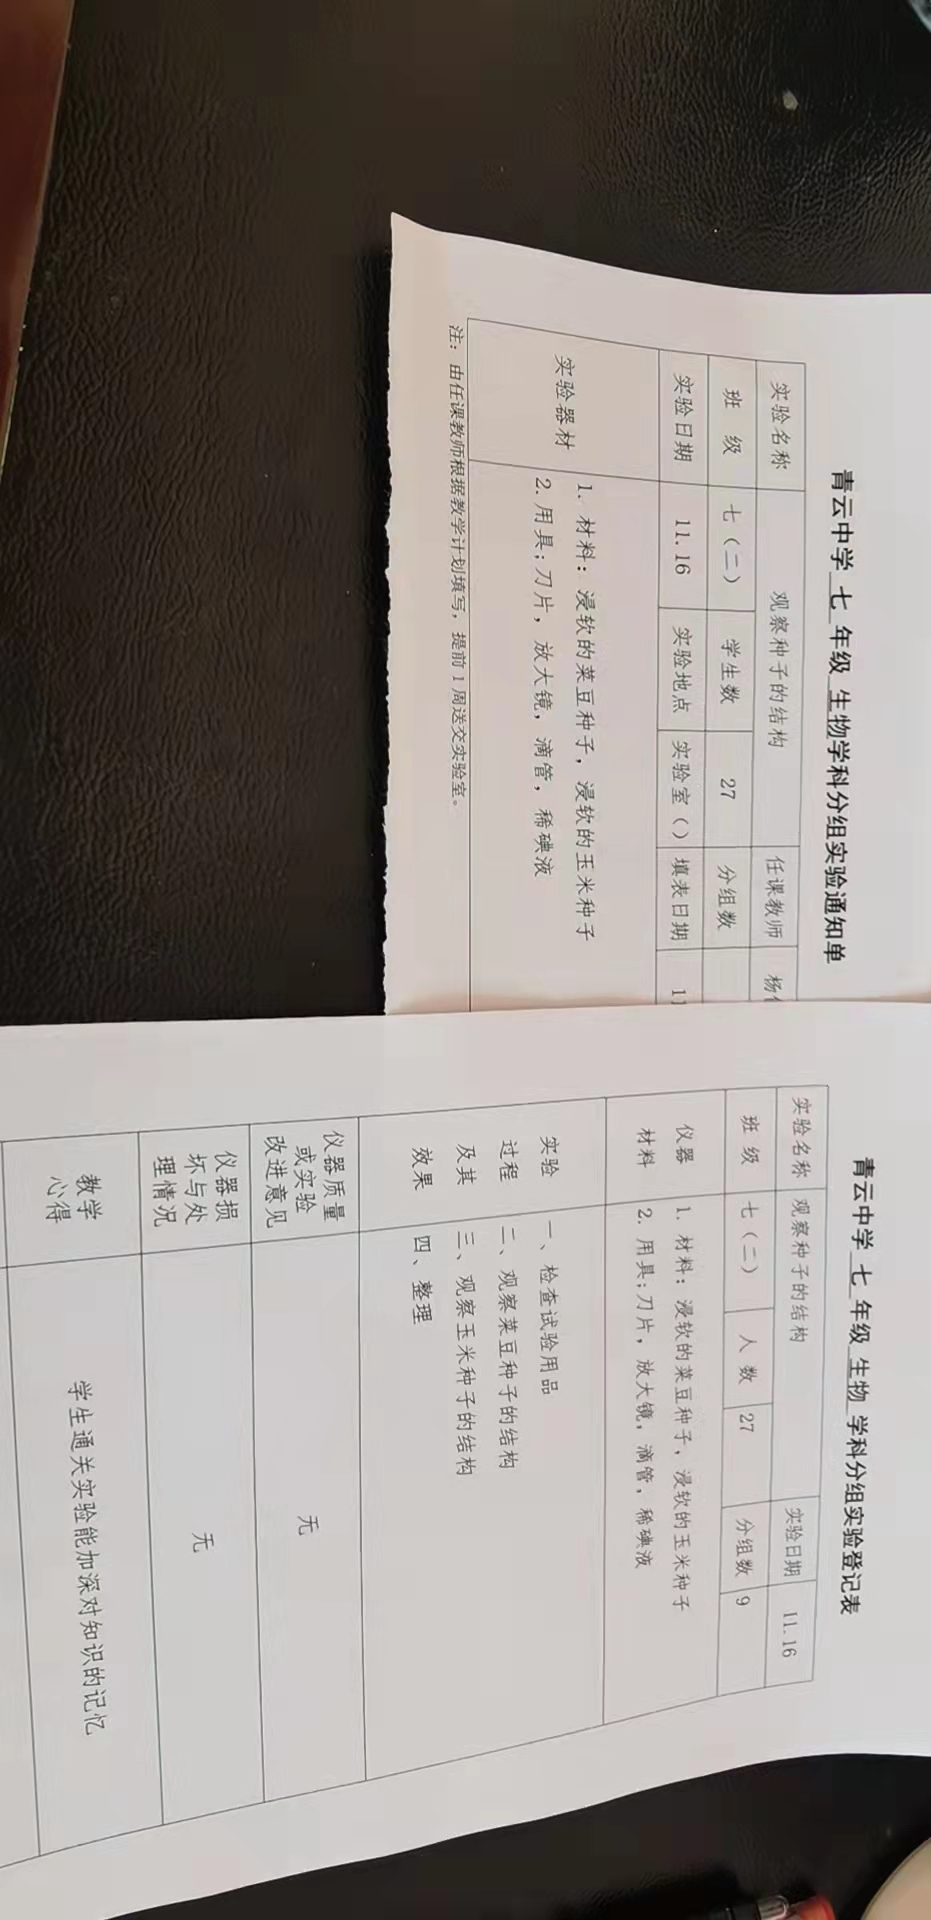 青云中学 七 年级 生物学科分组实验通知单
实验名称 观察种子的结构 任课教师 杨
班 级 七（二） 学生数 27 分组数
实验日期 11.16 实验地点 实验室（） 填表日期 11
实验器材
1. 材料：浸软的菜豆种子，浸软的玉米种子
2. 用具;刀片，放大镜，滴管，稀碘液
注：由任课教师根据教学计划填写，提前1周送交实验室。
青云中学 七 年级 生物 学科分组实验登记表
实验名称 观察种子的结构 实验日期 11.16
班 级 七（二） 人 数 27 分组数 9
仪器 1. 材料：浸软的菜豆种子，浸软的玉米种子
材料 2. 用具;刀片，放大镜，滴管，稀碘液
实验 一、检查试验用品
过程 二、观察菜豆种子的结构
及其 三、观察玉米种子的结构
效果 四、整理
仪器质量
或实验
改进意见
无
仪器损
坏与处
理情况
无
教学
心得
学生通关实验能加深对知识的记忆